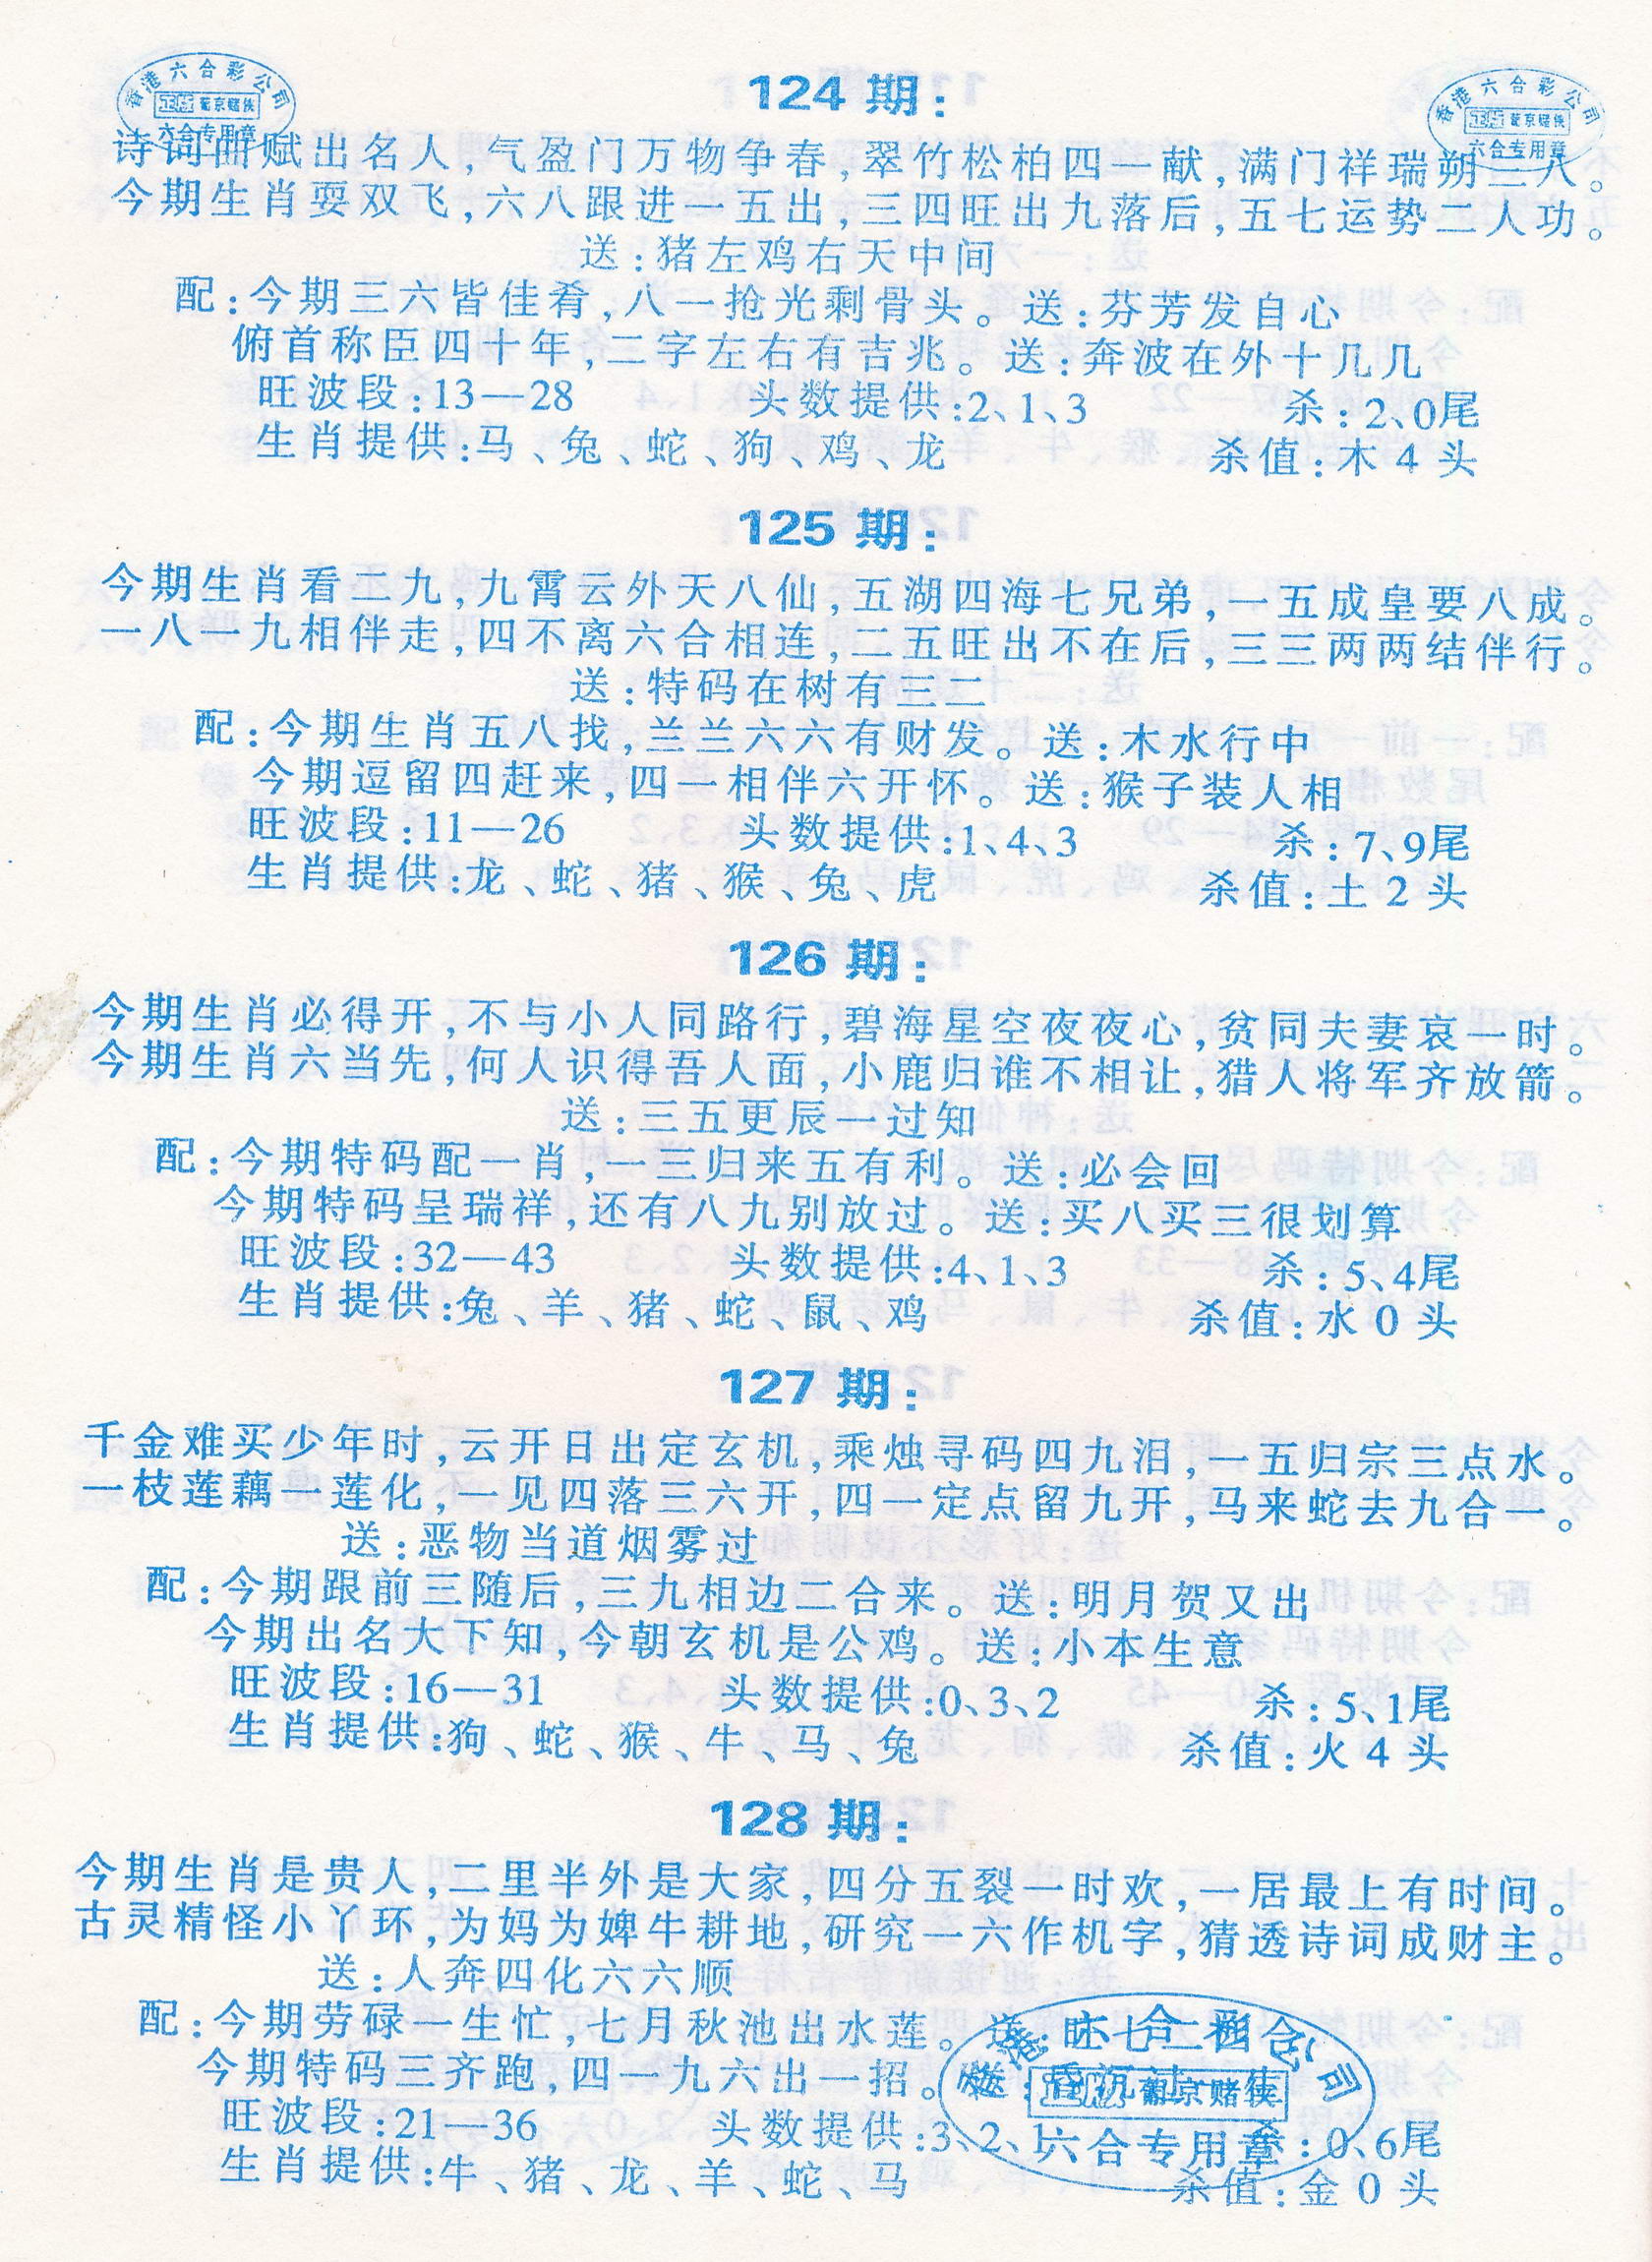 香港六合彩公司
正版 葡京赌侠
六合专用章
香港六合彩公司
正版 葡京赌侠
六合专用章
124 期:
诗词曲赋出名人,气盈门万物争春,翠竹松柏四一献,满门祥瑞朔二八。
今期生肖耍双飞,六八跟进一五出,三四旺出九落后,五七运势二人功。
送:猪左鸡右天中间
配:今期三六皆佳肴,八一抢光剩骨头。送:芬芳发自心
俯首称臣四十年,二字左右有吉兆。送:奔波在外十几几
旺波段:13—28 头数提供:2、1、3 杀:2、0尾
生肖提供:马、兔、蛇、狗、鸡、龙 杀值:木 4 头
125 期:
今期生肖看二九,九霄云外天八仙,五湖四海七兄弟,一五成皇要八成。
一八一九相伴走,四不离六合相连,二五旺出不在后,三三两两结伴行。
送:特码在树有三二
配:今期生肖五八找,兰兰六六有财发。送:木水行中
今期逗留四赶来,四一相伴六开怀。送:猴子装人相
旺波段:11—26 头数提供:1、4、3 杀:7、9尾
生肖提供:龙、蛇、猪、猴、兔、虎 杀值:土 2 头
126 期:
今期生肖必得开,不与小人同路行,碧海星空夜夜心,贫同夫妻哀一时。
今期生肖六当先,何人识得吾人面,小鹿归谁不相让,猎人将军齐放箭。
送:三五更辰一过知
配:今期特码配一肖,一三归来五有利。送:必会回
今期特码呈瑞祥,还有八九别放过。送:买八买三很划算
旺波段:32—43 头数提供:4、1、3 杀:5、4尾
生肖提供:兔、羊、猪、蛇、鼠、鸡 杀值:水 0 头
127 期:
千金难买少年时,云开日出定玄机,乘烛寻码四九泪,一五归宗三点水。
一枝莲藕一莲化,一见四落三六开,四一定点留九开,马来蛇去九合一。
送:恶物当道烟雾过
配:今期跟前三随后,三九相边二合来。送:明月贺又出
今期出名大下知,今朝玄机是公鸡。送:小本生意
旺波段:16—31 头数提供:0、3、2 杀:5、1尾
生肖提供:狗、蛇、猴、牛、马、兔 杀值:火 4 头
128 期:
今期生肖是贵人,二里半外是大家,四分五裂一时欢,一居最上有时间。
古灵精怪小丫环,为妈为婢牛耕地,研究一六作机字,猜透诗词成财主。
送:人奔四化六六顺
配:今期劳碌一生忙,七月秋池出水莲。送:旺七二四合
今期特码三齐跑,四一九六出一招。送:
旺波段:21—36 头数提供:3、2、1 杀:0、6尾
生肖提供:牛、猪、龙、羊、蛇、马 杀值:金 0 头
香港六合彩公司
正版 葡京赌侠
六合专用章